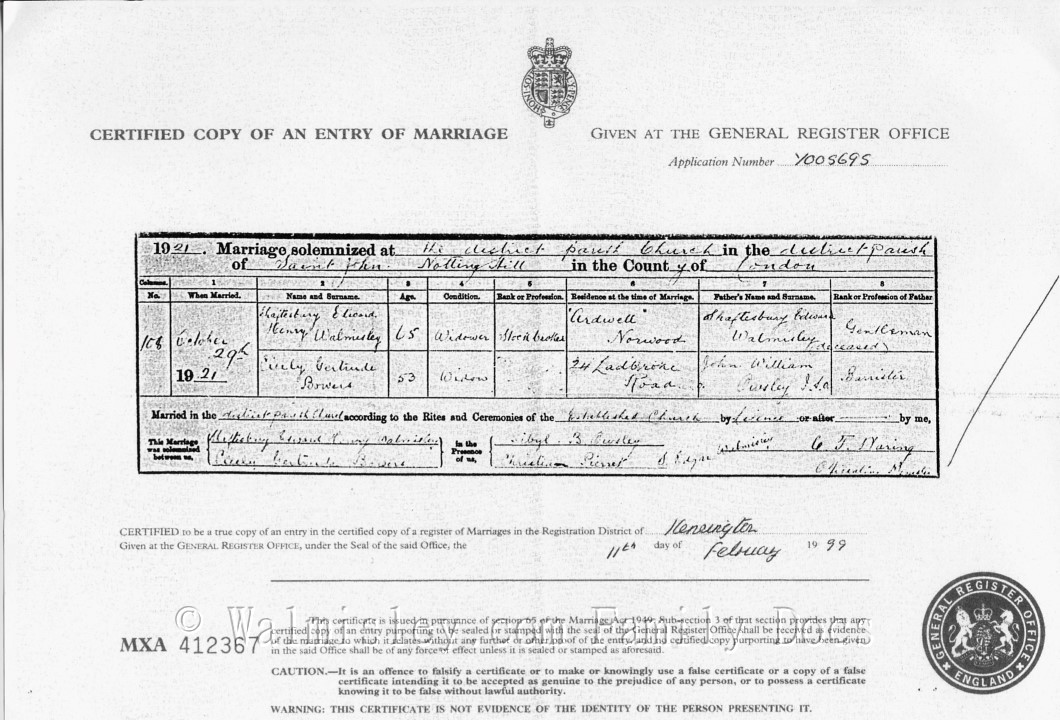 CERTIFIED COPY OF AN ENTRY OF MARRIAGE
GIVEN AT THE GENERAL REGISTER OFFICE
Application Number Y005695
1921. Marriage solemnized at the district parish Church in the district Parish
of Saint John. Notting Hill in the County of London
Columns. 1 2 3 4 5 6 7 8
No. When Married. Name and Surname. Age. Condition. Rank or Profession. Residence at the time of Marriage. Father's Name and Surname. Rank or Profession of Father
108 October 29th 1921
Shaftesbury Edward Henry Walmisley 65 Widower Stockbroker "Ardwell" Norwood Shaftesbury Edward Walmisley (deceased) Gentleman
Cicely Gertrude Bowers 53 Widow 24 Ladbroke Road John William Barrister
Married in the district parish Church according to the Rites and Ceremonies of the Established Church by Licence or after by me,
This Marriage was solemnized between us, Shaftesbury Edward Henry Walmisley
Cicely Gertrude Bowers
In the Presence of us, Sibyl B. Owsley
Christian Pierret S. Edgar Walmisley
Officiating Minister
CERTIFIED to be a true copy of an entry in the certified copy of a register of Marriages in the Registration District of Kensington
Given at the GENERAL REGISTER OFFICE, under the Seal of the said Office, the 11th day of February 1999
© Walmisley Family Docs
MXA 412367
This certificate is issued in pursuance of section 65 of the Marriage Act 1949. Sub-section 3 of that section provides that any
certified copy of an entry purporting to be sealed or stamped with the seal of the General Register Office shall be received as evidence
of the marriage to which it relates without any further or other proof of the entry, and no certified copy purporting to have been given
in the said Office shall be of any force or effect unless it is sealed or stamped as aforesaid.
CAUTION.—It is an offence to falsify a certificate or to make or knowingly use a false certificate or a copy of a false
certificate intending it to be accepted as genuine to the prejudice of any person, or to possess a certificate
knowing it to be false without lawful authority.
WARNING: THIS CERTIFICATE IS NOT EVIDENCE OF THE IDENTITY OF THE PERSON PRESENTING IT.
GENERAL REGISTER OFFICE
ENGLAND